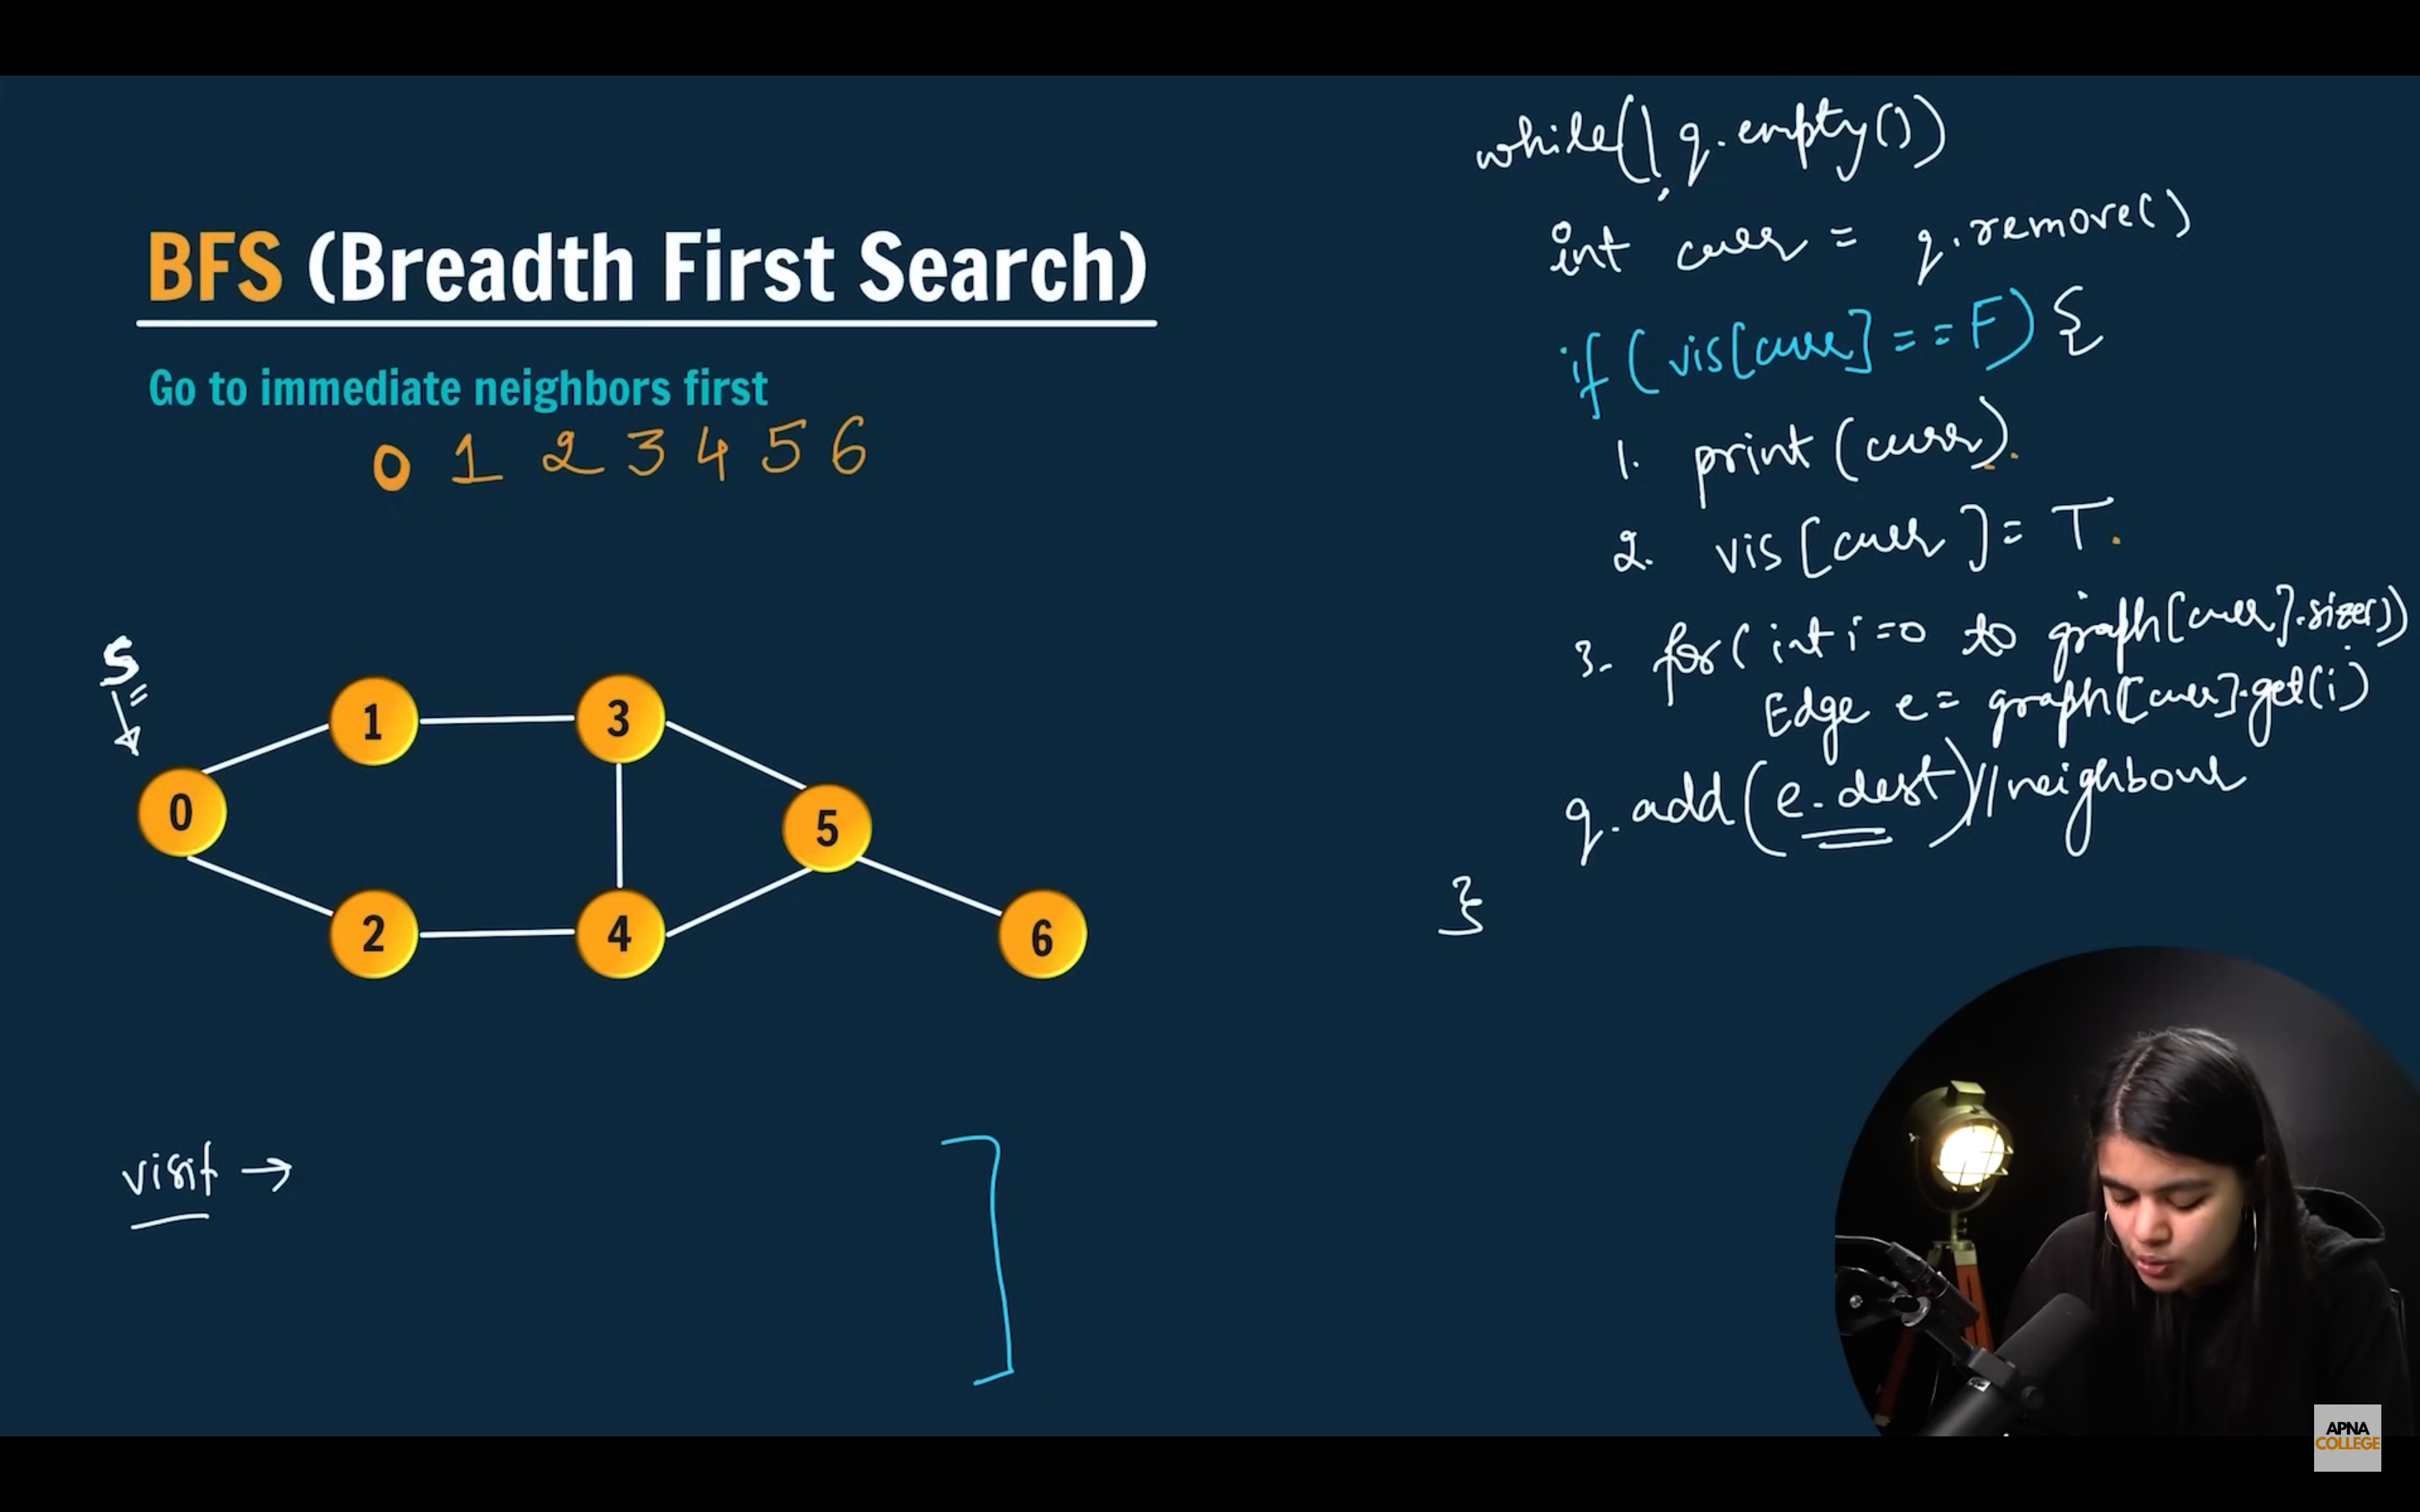 BFS (Breadth First Search)
Go to immediate neighbors first
0 1 2 3 4 5 6
S
0
1
3
5
2
4
6
visit →
while(! q.empty())
int curr = q.remove()
if (vis[curr] == F) {
1. print(curr).
2. vis[curr] = T.
3. for( int i=0 to graph[curr].size())
Edge e = graph[curr].get(i)
q.add(e.dest)//neighbour
}
APNA
COLLEGE